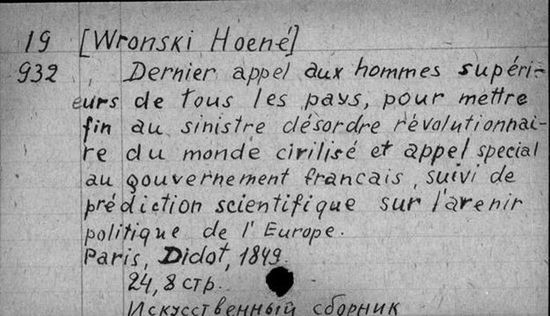 19 [Wronski Hoené]
932 Dernier appel aux hommes supéri-
eurs de tous les pays, pour mettre
fin au sinistre désordre révolutionnai-
re du monde civilisé et appel special
au gouvernement francais, suivi de
prédiction scientifique sur l'arenir
politique de l'Europe.
Paris, Didot, 1849.
24, 8 стр.
Искусственный сборник